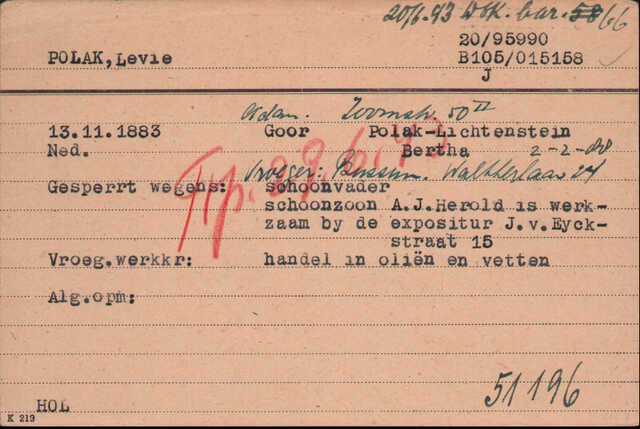 20/6-43 Wtk. bar. 58 66
20/95990
POLAK,Levie B105/015158
J
Adam. Zoomstr. 50 II
13.11.1883 Goor Polak-Lichtenstein
Ned. Bertha 2-2-88
Trsp. 29.6.43
Vroeger: Bussum. Waltherlaan 24
Gesperrt wegens: schoonvader
schoonzoon A.J.Herold is werk-
zaam by de expositur J.v.Eyck-
straat 15
Vroeg.werkkr: handel in oliën en vetten
Alg.opm:
51196
HOL
K 219